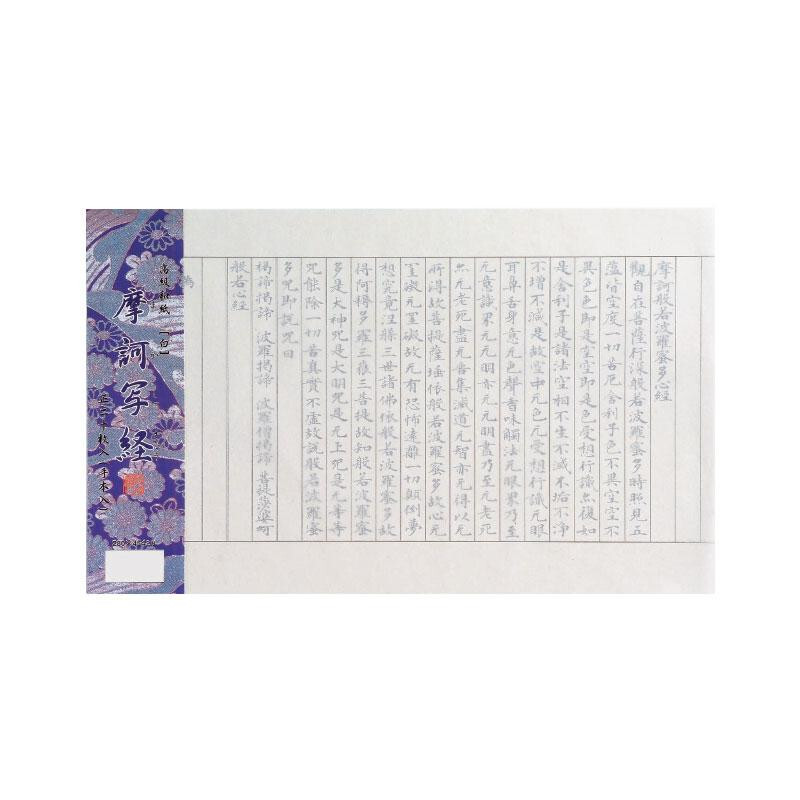 摩訶般若波羅蜜多心経
觀自在菩薩行深般若波羅蜜多時照見五
蘊皆空度一切苦厄舎利子色不異空空不
異色色即是空空即是色受想行識亦復如
是舎利子是諸法空相不生不滅不垢不浄
不増不減是故空中无色无受想行識无眼
耳鼻舌身意无色聲香味觸法无眼界乃至
无意識界无无明亦无无明盡乃至无老死
亦无老死盡无苦集滅道无智亦无得以无
所得故菩提薩埵依般若波羅蜜多故心无
罣礙无罣礙故无有恐怖遠離一切顛倒夢
想究竟涅槃三世諸佛依般若波羅蜜多故
得阿耨多羅三藐三菩提故知般若波羅蜜
多是大神咒是大明咒是无上咒是无等等
咒能除一切苦真實不虚故説般若波羅蜜
多咒即説咒曰
羯諦羯諦 波羅羯諦 波羅僧羯諦 菩提娑婆呵
般若心経
為
高級和紙 [白]
摩訶写経
枚入(手本入)